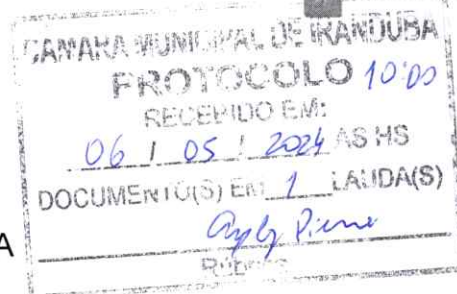 CÂMARA MUNICIPAL DE IRANDUBA
PROTOCOLO 10:00
RECEBIDO EM:
06 / 05 / 2024 AS HS
DOCUMENTO(S) EM 1 LAUDA(S)
A